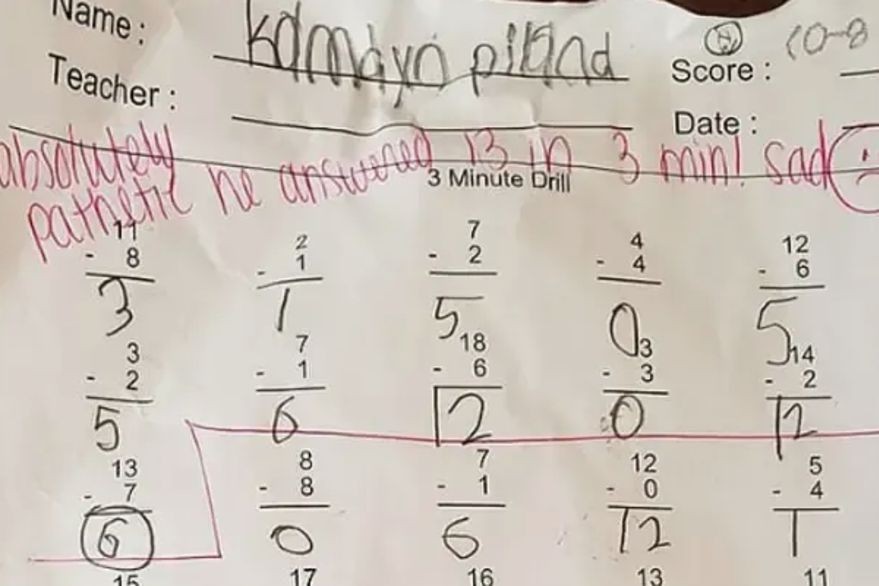 Name: Kamdyn Piland
Score: 10-8
Teacher:
Date:
absolutely pathetic he answered 13 in 3 min! sad
3 Minute Drill
11 2 7 4 12
- 8 - 1 - 2 - 4 - 6
3 1 5 0 5
3 7 18 3 14
- 2 - 1 - 6 - 3 - 2
5 6 12 0 12
13 8 7 12 5
- 7 - 8 - 1 - 0 - 4
6 0 6 12 1
15 17 16 13 11